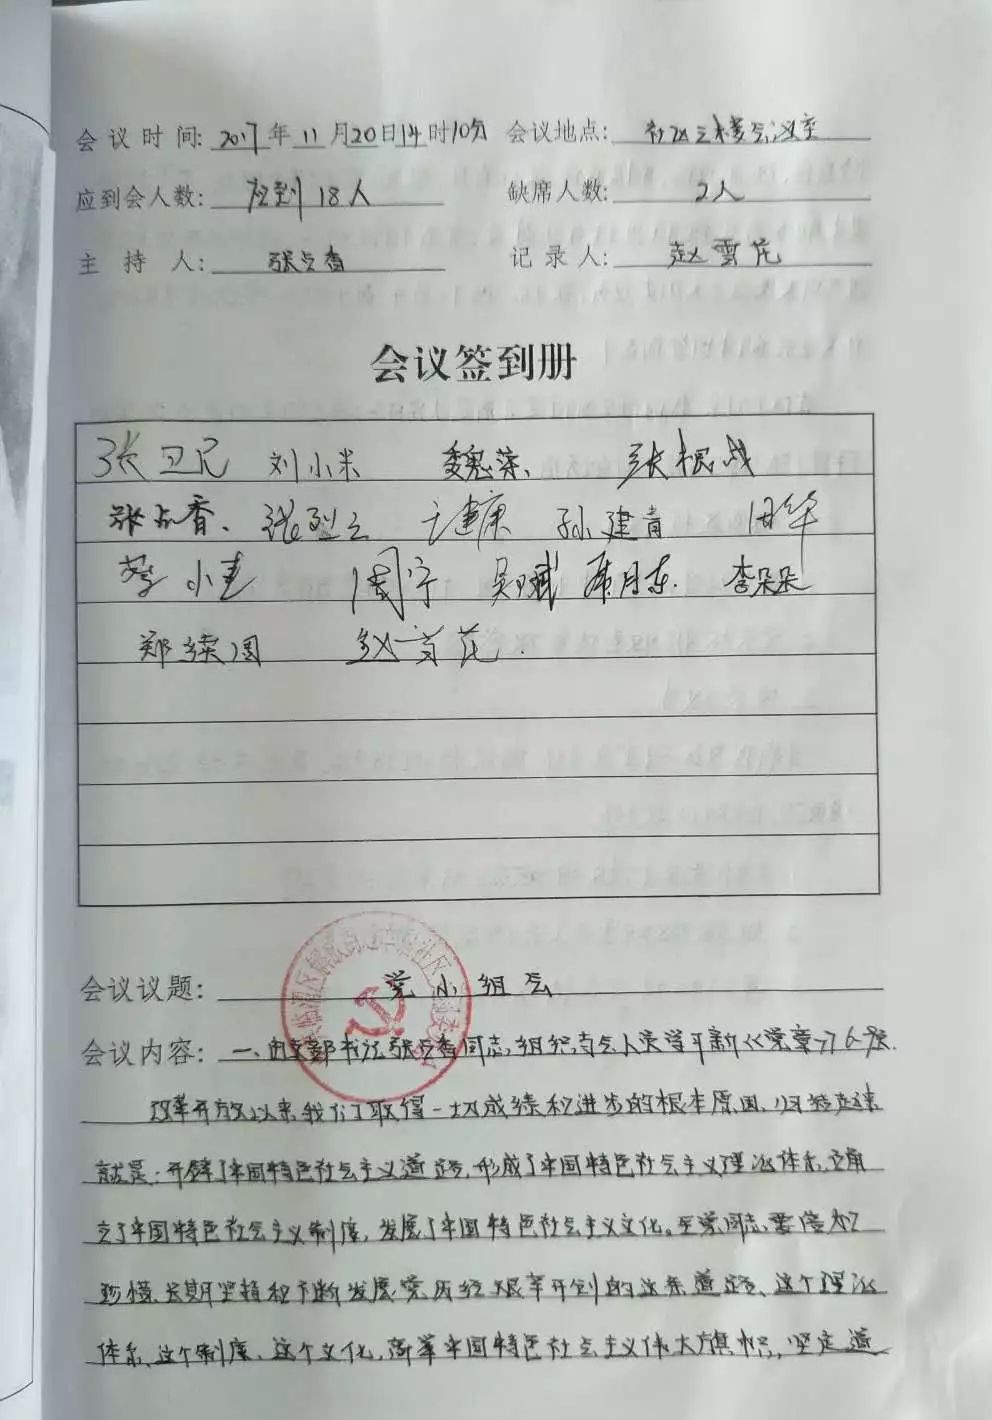 会议时间: 2017年11月20日14时10分 会议地点: 社区三楼会议室
应到会人数: 应到18人 缺席人数: 2人
主持人: 张占香 记录人: 赵雪花
会议签到册
张卫民 刘小米 魏荣 张根战
张占香 张烈云 建康 孙建青 田华
小惠 周宁 吴斌 席月东 李朵朵
郑续周 赵雪花
会议议题: 党小组会
会议内容: 一、由支部书记张占香同志,组织与会人员学习新《党章》
改革开放以来我们取得一切成绩和进步的根本原因,归结起来
就是:开辟了中国特色社会主义道路,形成了中国特色社会主义理论体系,确
立了中国特色社会主义制度,发展了中国特色社会主义文化。全党同志要倍加
珍惜、长期坚持和不断发展党历经艰辛开创的这条道路、这个理论
体系、这个制度、这个文化,高举中国特色社会主义伟大旗帜,坚定道